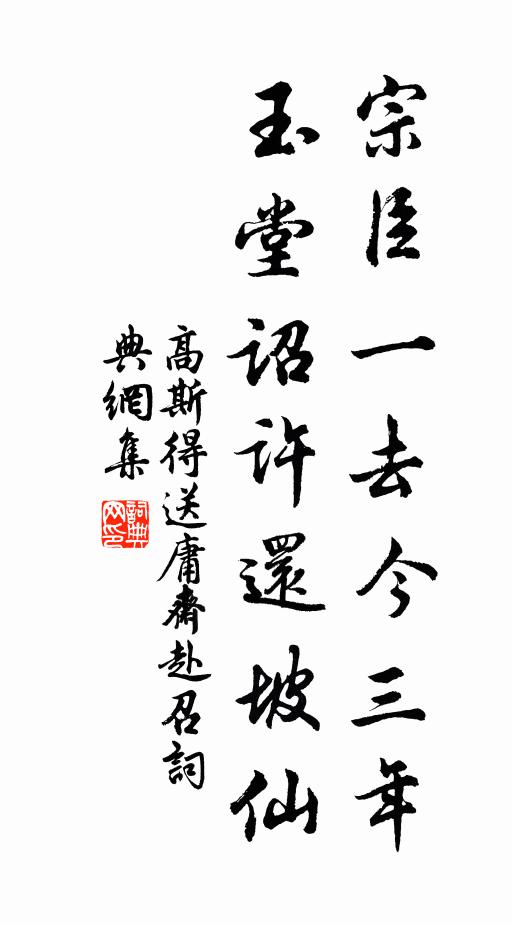 宗臣一去今三年
玉堂詔許還坡仙
高斯得送庸齋赴召詞
典網集
詞典網印